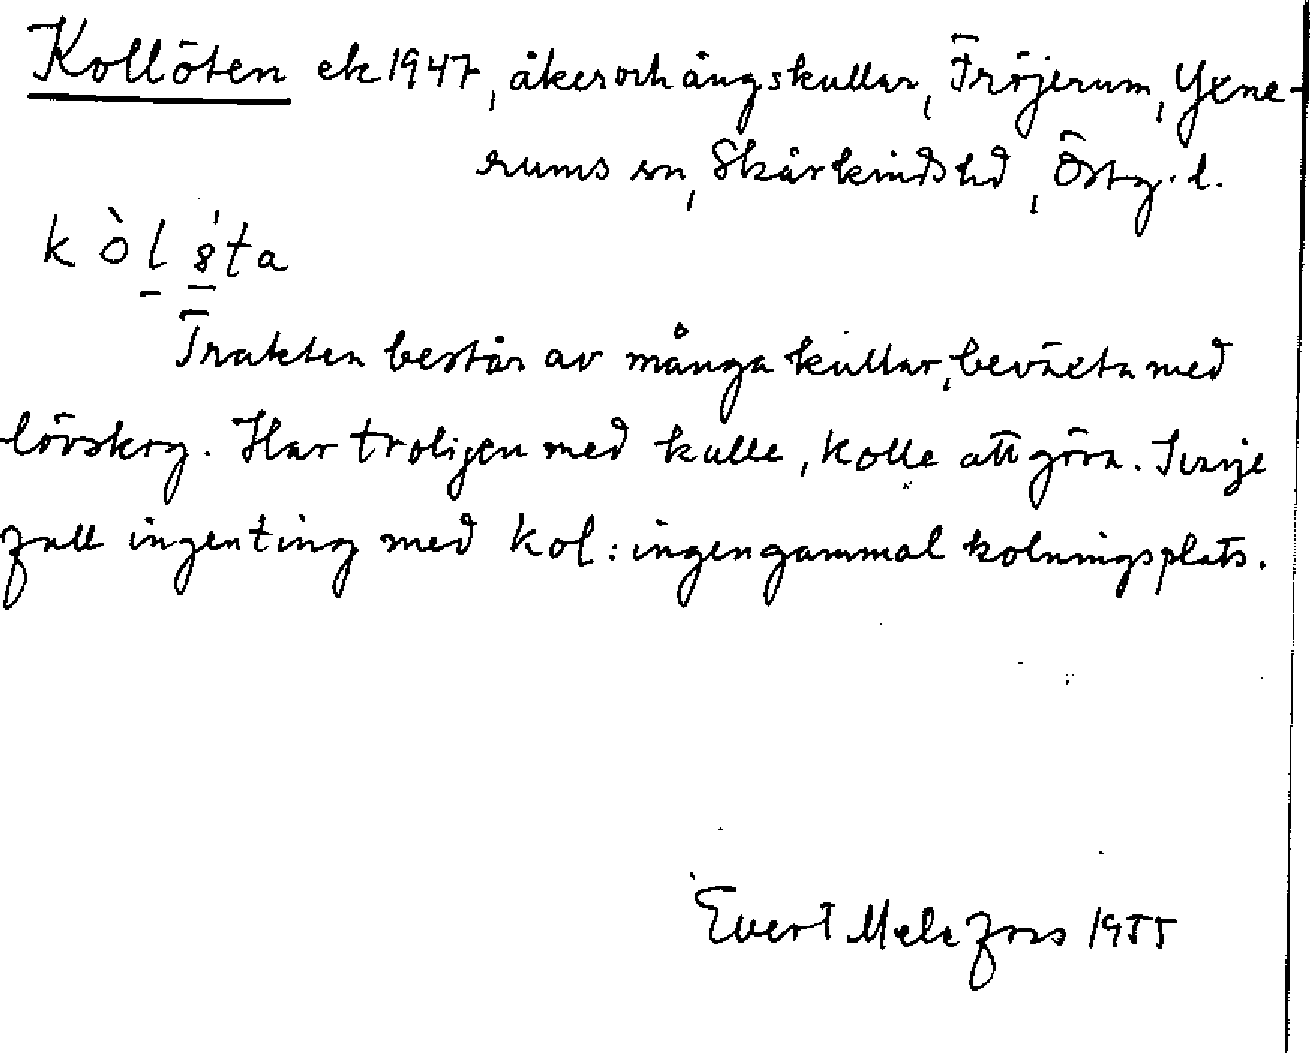 Kollöten ek 1947, åker och ängskullar, Fröjerum, Yxne-
rums sn, Skärkinds hd, Östg. l.
Trakten består av många kullar, beväxta med
lövskog. Har troligen med kulle, kolle att göra. I varje
fall ingenting med kol: ingen gammal kolningsplats.
Evert Melefors 1955